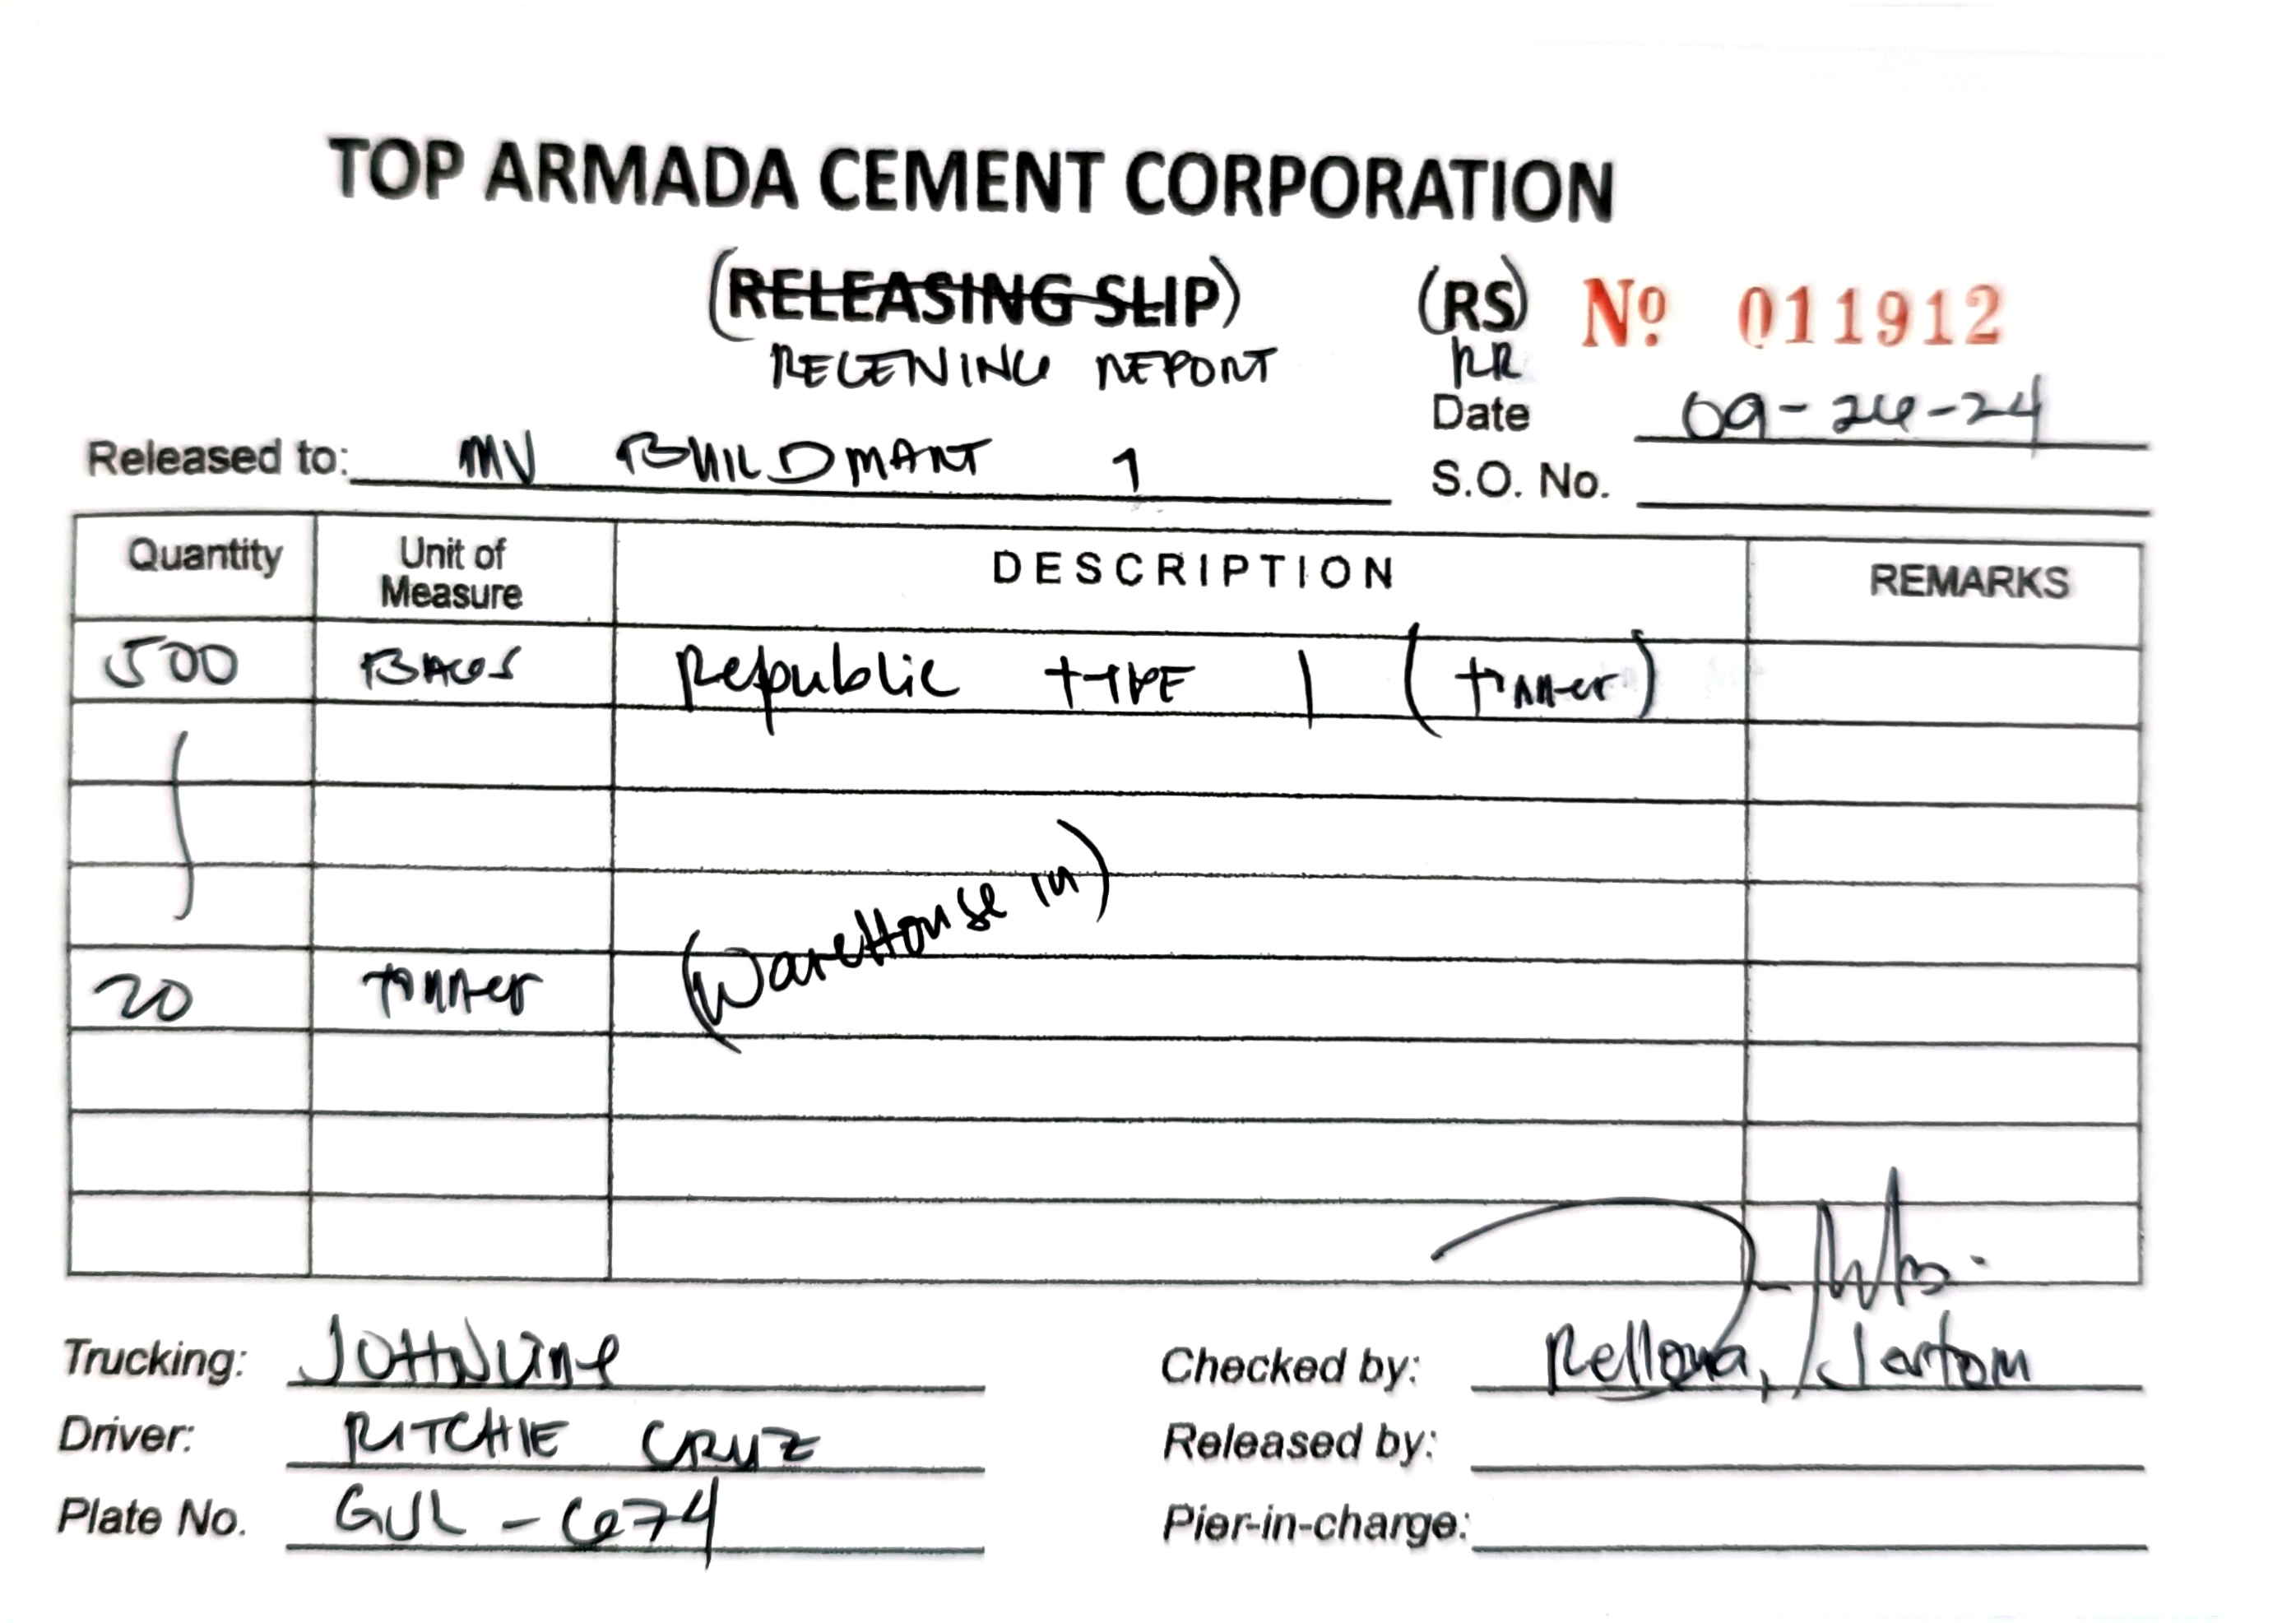 TOP ARMADA CEMENT CORPORATION
(RELEASING SLIP) (RS) Nº 011912
RECEIVING REPORT RR
Date 09-26-24
Released to: MV BUILDMART 1
S.O. No.
Quantity Unit of Measure DESCRIPTION REMARKS
500 BAGS Republic TYPE 1 (tonner)
(WareHouse in)
20 tonner
Trucking: JOHNLINE Checked by: Rellona, Jestom
Driver: RITCHIE CRUZ Released by:
Plate No. GUL - 674 Pier-in-charge: